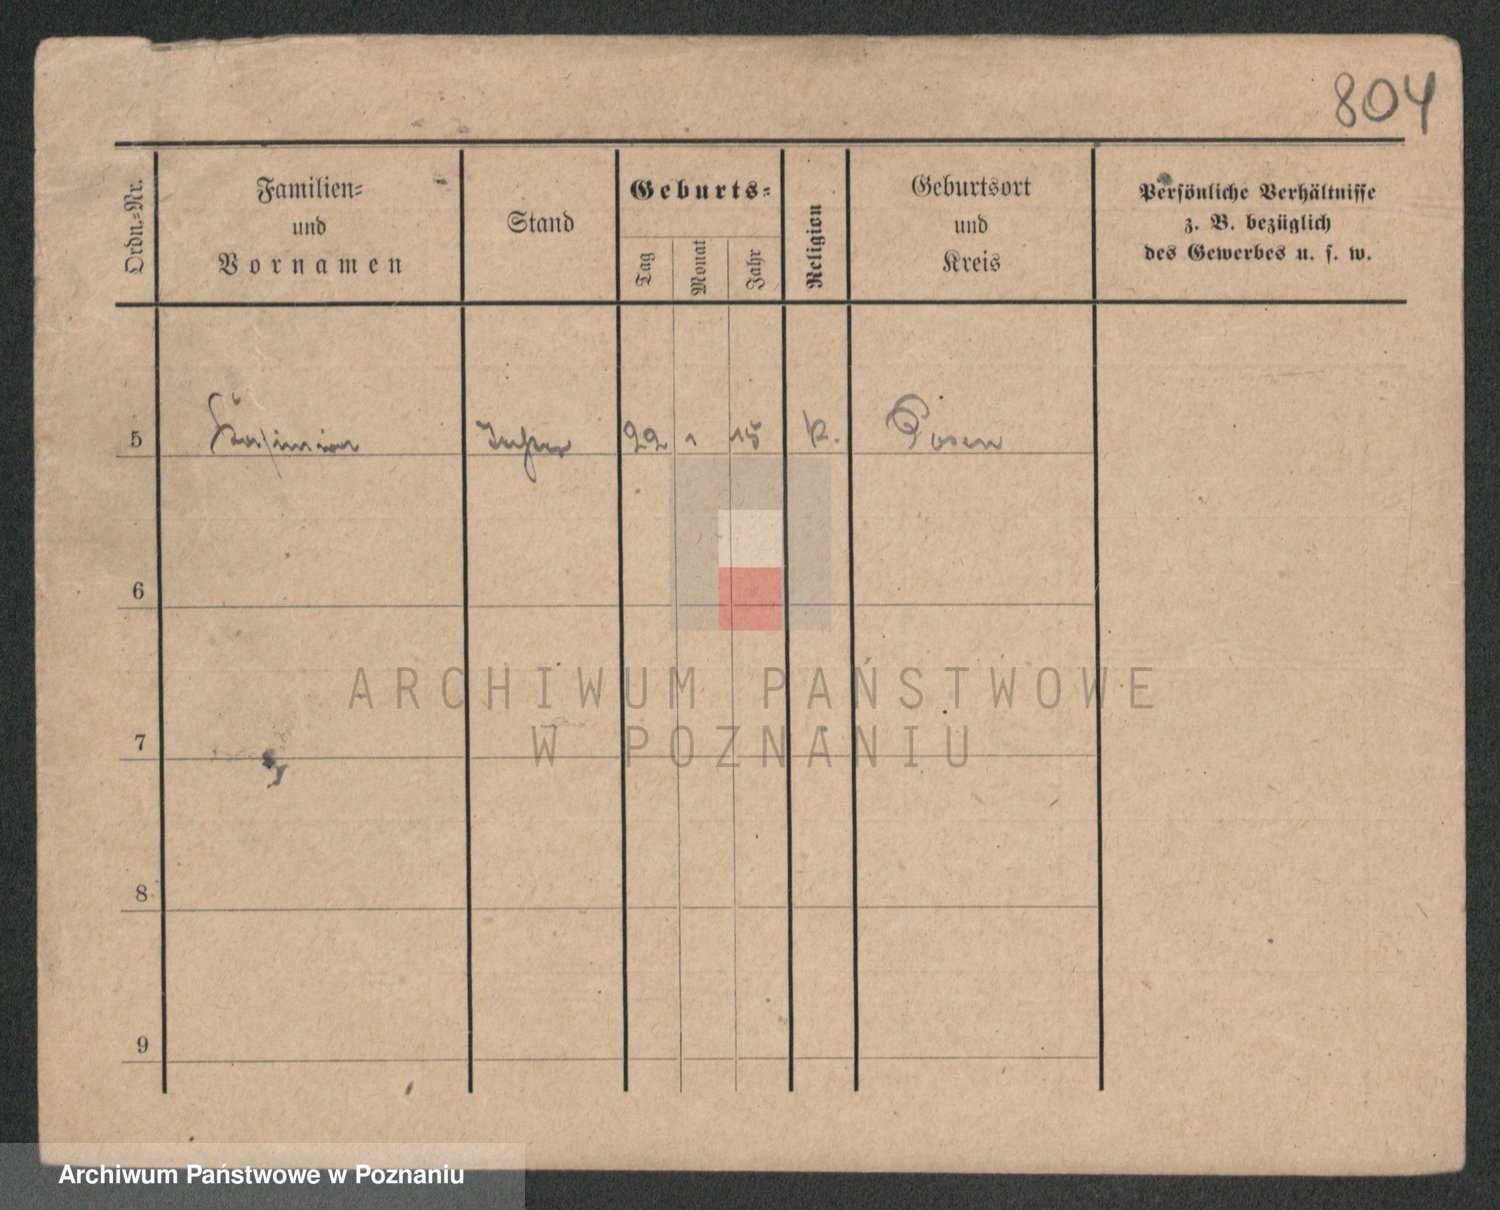 804
Ordn.=Nr.
Familien=
und
Vornamen
Stand
Geburts=
Tag
Monat
Jahr
Religion
Geburtsort
und
Kreis
Persönliche Verhältnisse
z. B. bezüglich
des Gewerbes u. s. w.
5 Kasimir 22 1 15 k. Posen
6
7
8
9
ARCHIWUM PAŃSTWOWE
W POZNANIU
Archiwum Państwowe w Poznaniu